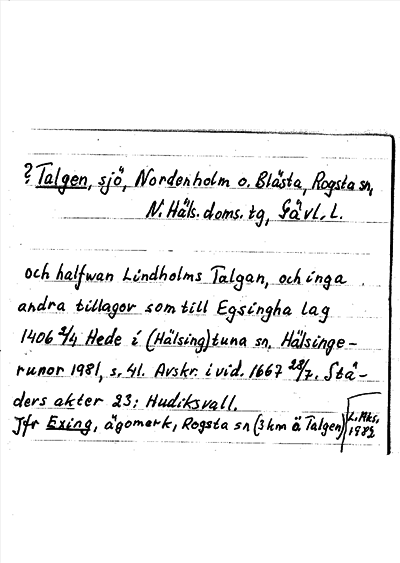 ? Talgen, sjö, Nordenholm o. Blästa, Rogsta sn,
N. Häls. doms. tg, Gävl. l.
och halfwan Lindholms Talgan, och inga
andra tillagor som till Egsingha lag
1406 2/4 Hede i (Hälsing)tuna sn. Hälsinge-
runor 1981, s. 41. Avskr. i vid. 1667 23/7. Stä-
ders akter 23: Hudiksvall.
Jfr Exing, ägomark, Rogsta sn (3 km ä Talgen)
L. Hks.
1982